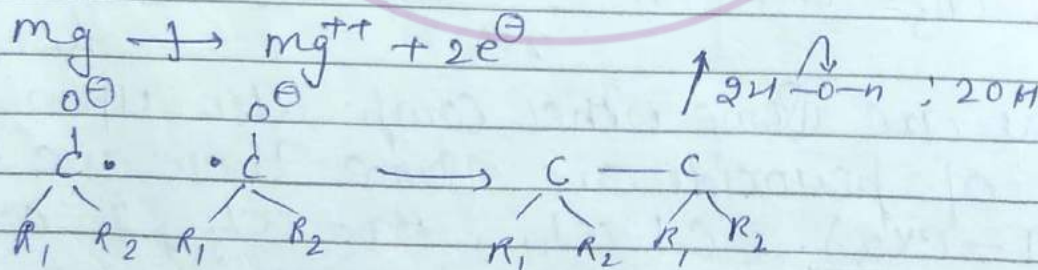 mg → mg++ + 2e⊖
O⊖ O⊖ 2H-O-H : 2OH
C• •C → C — C
R1 R2 R1 R2 R1 R2 R1 R2